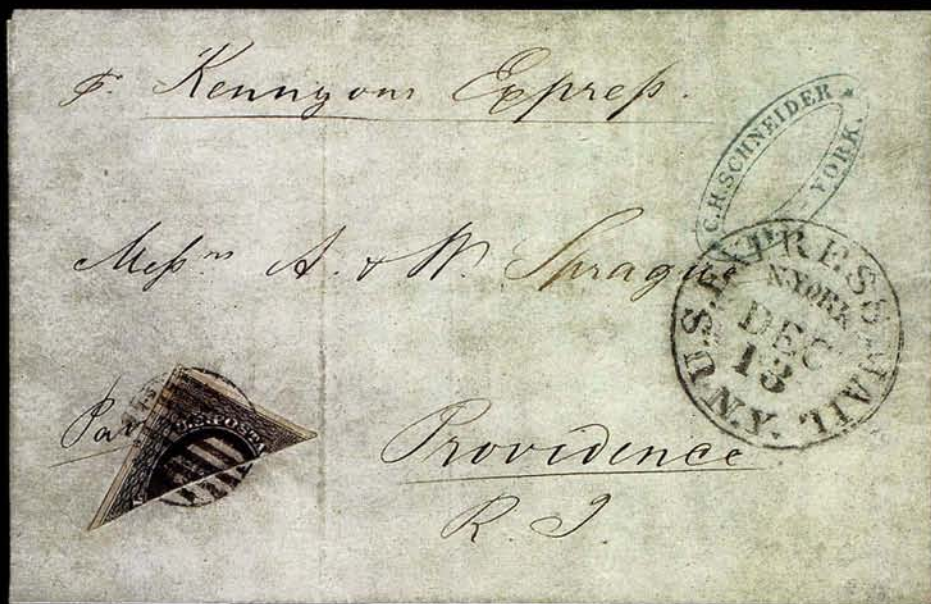 p. Kennyons Express.
C.H. SCHNEIDER
YORK.
Messrs A. & W. Sprague
U.S. EXPRESS MAIL N.Y.
N.YORK
DEC
13
U.S. POST
Providence
R. I